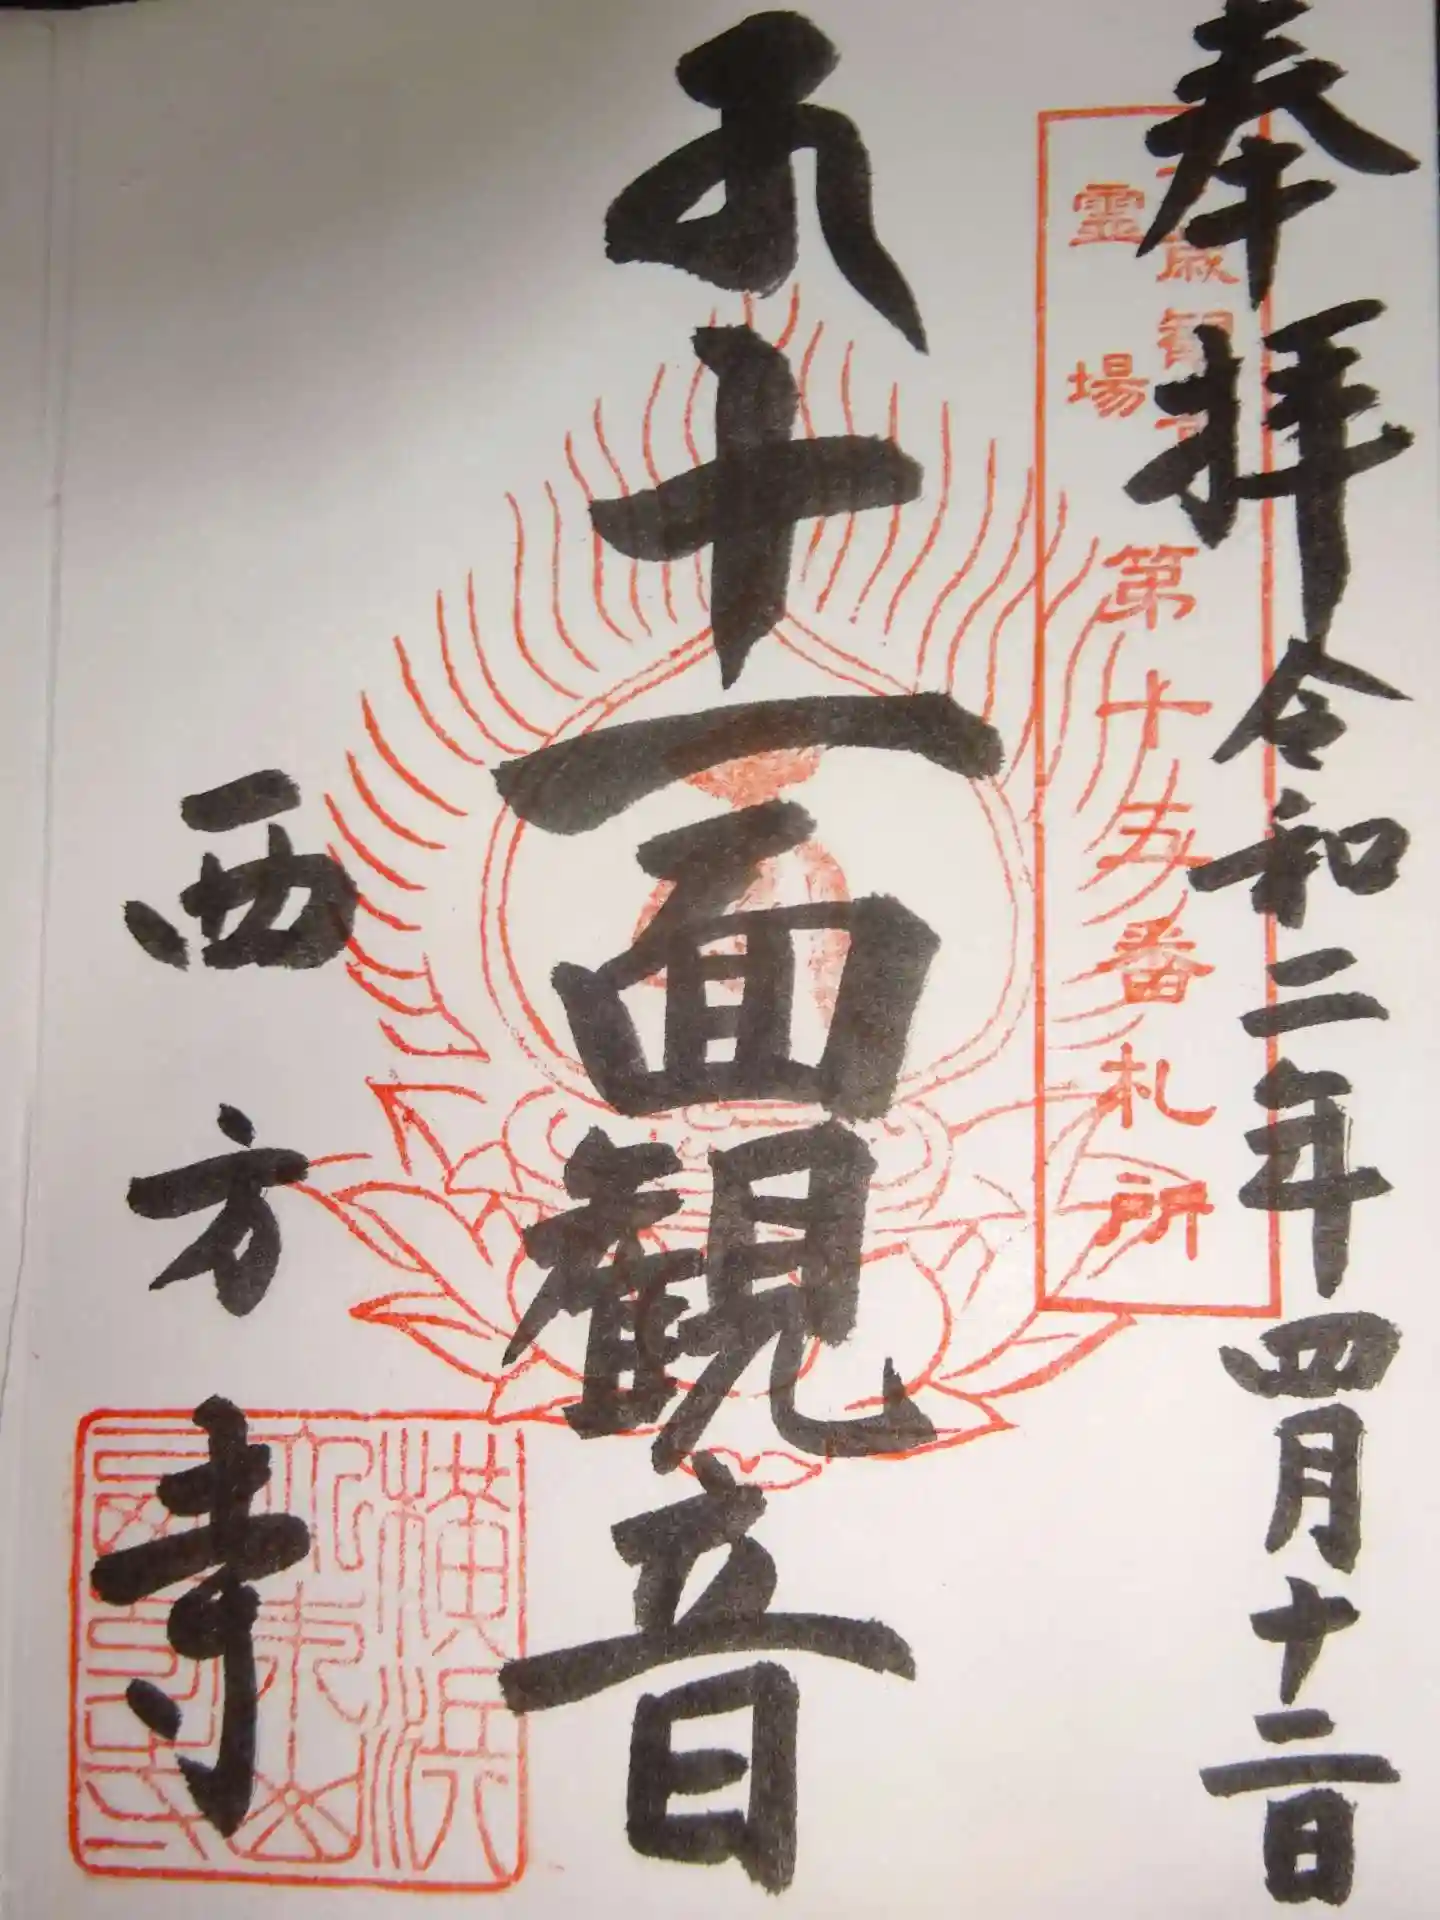 奉拝 令和二年四月十二日
観音
霊場
第十五番札所
十一面観音
西方寺
横浜